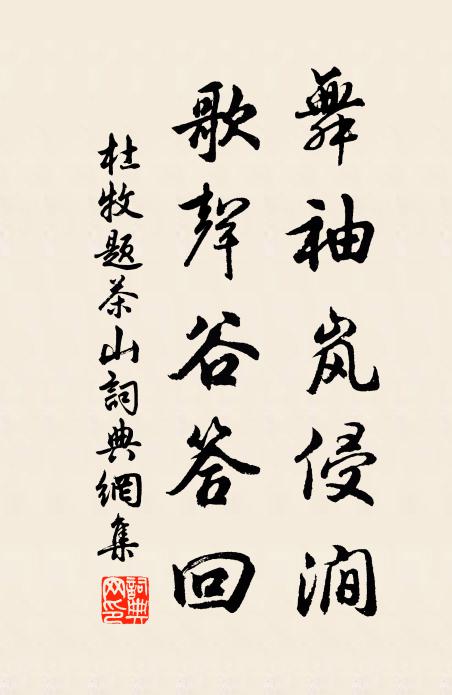 舞袖岚侵澗
歌聲谷答回
杜牧题茶山詞典網集
詞典網印